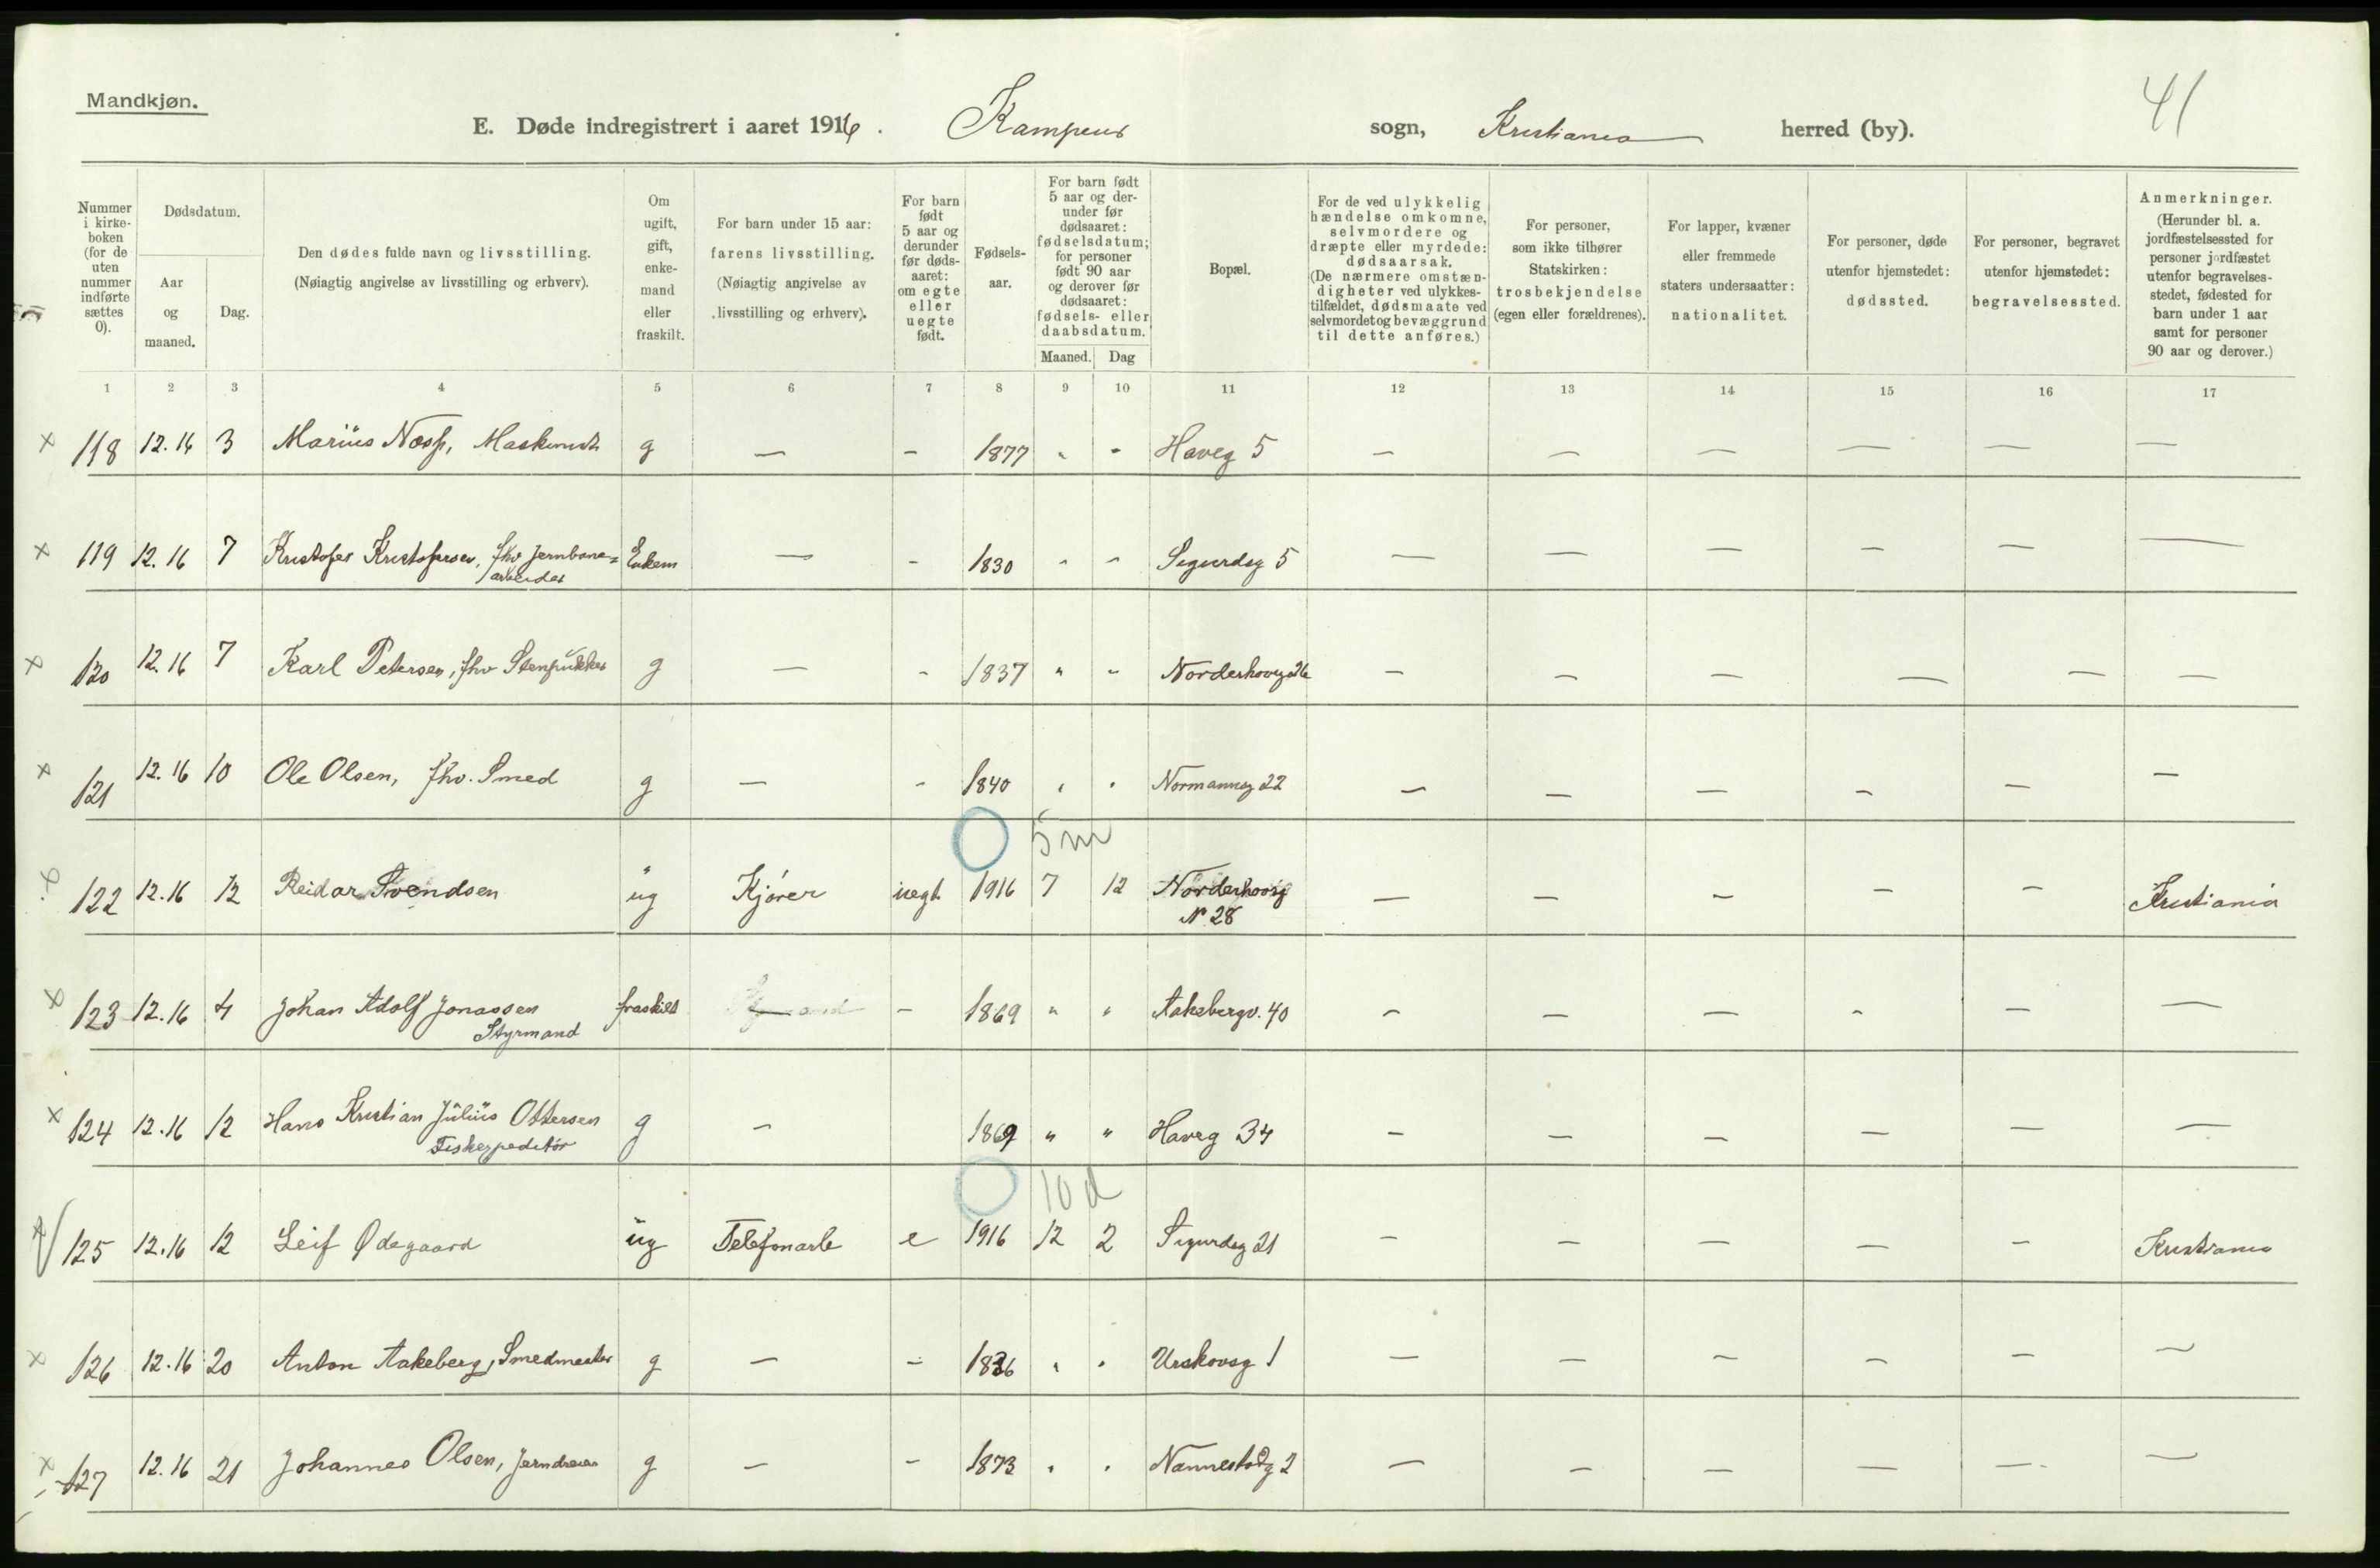 Mandkjøn.
41
E. Døde indregistrert i aaret 1916. Kampens sogn, Kristiania herred (by).
Nummer i kirke- boken (for de uten nummer indførte sættes 0).
Dødsdatum.
Aar og maaned.
Dag.
Den dødes fulde navn og livsstilling.
(Nøiagtig angivelse av livsstilling og erhverv).
Om ugift, gift, enke- mand eller fraskilt.
For barn under 15 aar: farens livsstilling.
(Nøiagtig angivelse av livsstilling og erhverv).
For barn født 5 aar og derunder før døds- aaret: om egte eller uegte født.
Fødsels- aar.
For barn født 5 aar og der- under før dødsaaret: fødselsdatum; for personer født 90 aar og derover før dødsaaret: fødsels- eller daabsdatum.
Maaned. Dag
Bopæl.
For de ved ulykkelig hændelse omkomne, selvmordere og dræpte eller myrdede: dødsaarsak.
(De nærmere omstæn- digheter ved ulykkes- tilfældet, dødsmaate ved selvmordet og bevæggrund til dette anføres.)
For personer, som ikke tilhører Statskirken: trosbekjendelse (egen eller forældrenes).
For lapper, kvæner eller fremmede staters undersaatter: nationalitet.
For personer, døde utenfor hjemstedet: dødssted.
For personer, begravet utenfor hjemstedet: begravelsessted.
Anmerkninger.
(Herunder bl. a. jordfæstelsessted for personer jordfæstet utenfor begravelses- stedet, fødested for barn under 1 aar samt for personer 90 aar og derover.)
1 2 3 4 5 6 7 8 9 10 11 12 13 14 15 16 17
× 118 12.16 3 Marius Næss, Maskinist g — - 1877 " - Haveg 5 — — — — — —
× 119 12.16 7 Kristofer Kristofersen, fhv Jernbane= Enkem — - 1830 - - Sigurdsg 5 — — — — — —
arbeider
× 120 12.16 7 Karl Petersen, fhv Stenpukker g — - 1837 " - Norderhovsg 26 — — — — — —
× 121 12.16 10 Ole Olsen, fhv. Smed g — - 1840 " " Normannsg 22 — — — — — —
5 m
× 122 12.16 12 Reidar Svendsen ug Kjører uegt 1916 7 12 Norderhovsg — — — — — Kristiania
N 28
× 123 12.16 4 Johan Adolf Jonassen fraskilt - 1869 " " Aakebergv. 40 — — — — — —
Styrmand
× 124 12.16 12 Hans Kristian Julius Ottersen g — 1869 " " Haveg 34 — — — — — —
Fiskexpeditør
10 d
125 12.16 12 Leif Ødegaard ug Telefonarb e 1916 12 2 Sigurdsg 21 — — — — — Kristiania
× 126 12.16 20 Anton Aakeberg, Smedmester g — - 1836 " " Urskovsg 1 — — — — — —
× 127 12.16 21 Johannes Olsen, Jerndreier g — - 1873 " " Nannestadg 2 — — — — — —